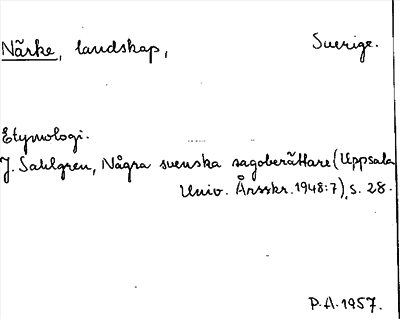 Närke, landskap, Sverige.
Etymologi.
J. Sahlgren, Några svenska sagoberättare (Uppsala
Univ. Årsskr. 1948:7), s. 28.
P.A. 1957.